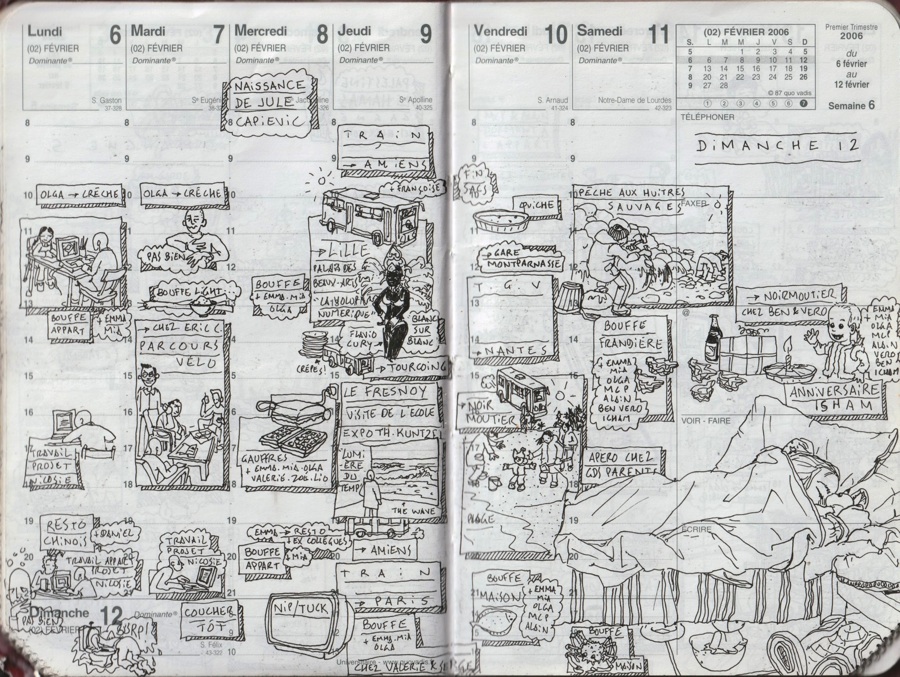 Lundi 6
(02) FÉVRIER
Dominante®
S. Gaston
37-328
8
9
10
OLGA → CRÈCHE
11
12
13
BOUFFE APPART
+ EMMA
MIA
14
15
16
TRAVAIL
PROJET
NICOSIE
18
19
RESTO
CHINOIS
+ DANIEL
20
TRAVAIL APPART
PROJET
NICOSIE
21
PAS BIEN
Dimanche 12
(02) FÉVRIER
Dominante®
S. Félix
43-322
Mardi 7
(02) FÉVRIER
Dominante®
OLGA → CRÈCHE
PAS BIEN
BOUFFE LIGHT
→ CHEZ ERIC C.
PARCOURS
VÉLO
TRAVAIL
PROJET
NICOSIE
COUCHER
TÔT
Mercredi 8
(02) FÉVRIER
Dominante®
NAISSANCE
DE JULE
CAPIEVIC
BOUFFE
+ EMMA. MIA
OLGA
GAUFFRES
+ EMMA. MIA. OLGA
VALERIE. ZOE. LIO
EMMA → RESTO
EX COLLÈGUES
BOUFFE
APPART
+ MIA
NIP/TUCK
Jeudi 9
(02) FÉVRIER
Dominante®
Se Apolline
40-325
TRAIN
→ AMIENS
+ FRANÇOISE
→ LILLE
PALAIS DES
BEAUX-ARTS
NUMÉRIQUE"
FLAVIO
CURY
BLANC
SUR
BLANC
CRÊPES!
→ TOURCOING
LE FRESNOY
VISITE DE L'ÉCOLE
EXPO TH. KUNTZEL
LUMIÈRE
DU
TEMPS
THE WAVE
→ AMIENS
TRAIN
→ PARIS
BOUFFE
+ EMMA. MIA
OLGA
CHEZ VALERIE K
Vendredi 10
(02) FÉVRIER
Dominante®
S. Arnaud
41-324
FIN
QUICHE
→ GARE
MONTPARNASSE
T.G.V
→ NANTES
→ NOIR
MOUTIER
PLAGE
BOUFFE
MAISON
+ EMMA
MIA
OLGA
MLP
ALAIN
Samedi 11
(02) FÉVRIER
Dominante®
Notre-Dame de Lourdes
42-323
PÊCHE AUX HUÎTRES
SAUVAGES
BOUFFE
FRANDIÈRE
+ EMMA
MIA
OLGA
MLP
ALAIN
BEN VERO
ICHAM
APERO CHEZ
GDS PARENTS
BOUFFE
MAISON
(02) FÉVRIER 2006
S. L M M J V S D
5 1 2 3 4 5
6 6 7 8 9 10 11 12
7 13 14 15 16 17 18 19
8 20 21 22 23 24 25 26
9 27 28
© 67 quo vadis
1 2 3 4 5 6 7
Premier Trimestre
2006
du
6 février
au
12 février
Semaine 6
TÉLÉPHONER
DIMANCHE 12
FAXER
@
→ NOIRMOUTIER
CHEZ BEN & VERO
+ EMMA
MIA
OLGA
MLP
ALAIN
VERO
BEN
ICHAM
ANNIVERSAIRE
ISHAM
VOIR - FAIRE
ÉCRIRE